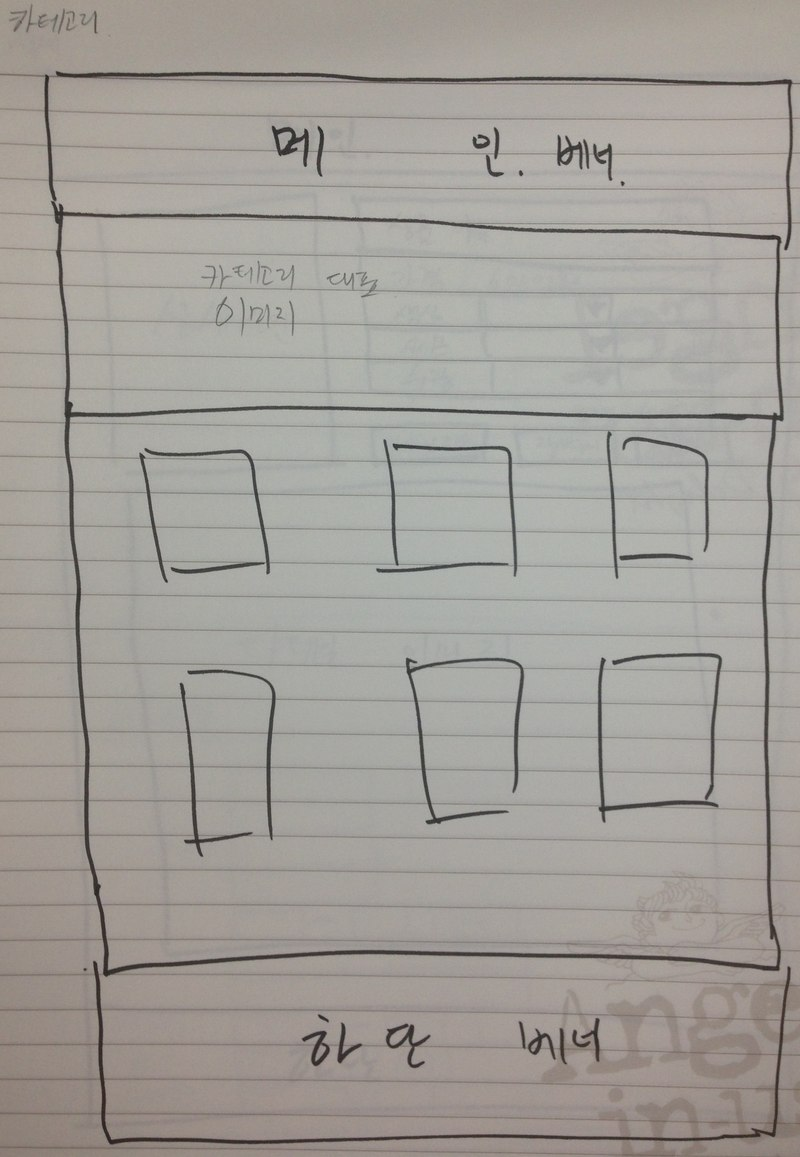 카테고리
메 인. 베너.
카테고리 대표
이미지
하 단 베너
Ange
in-